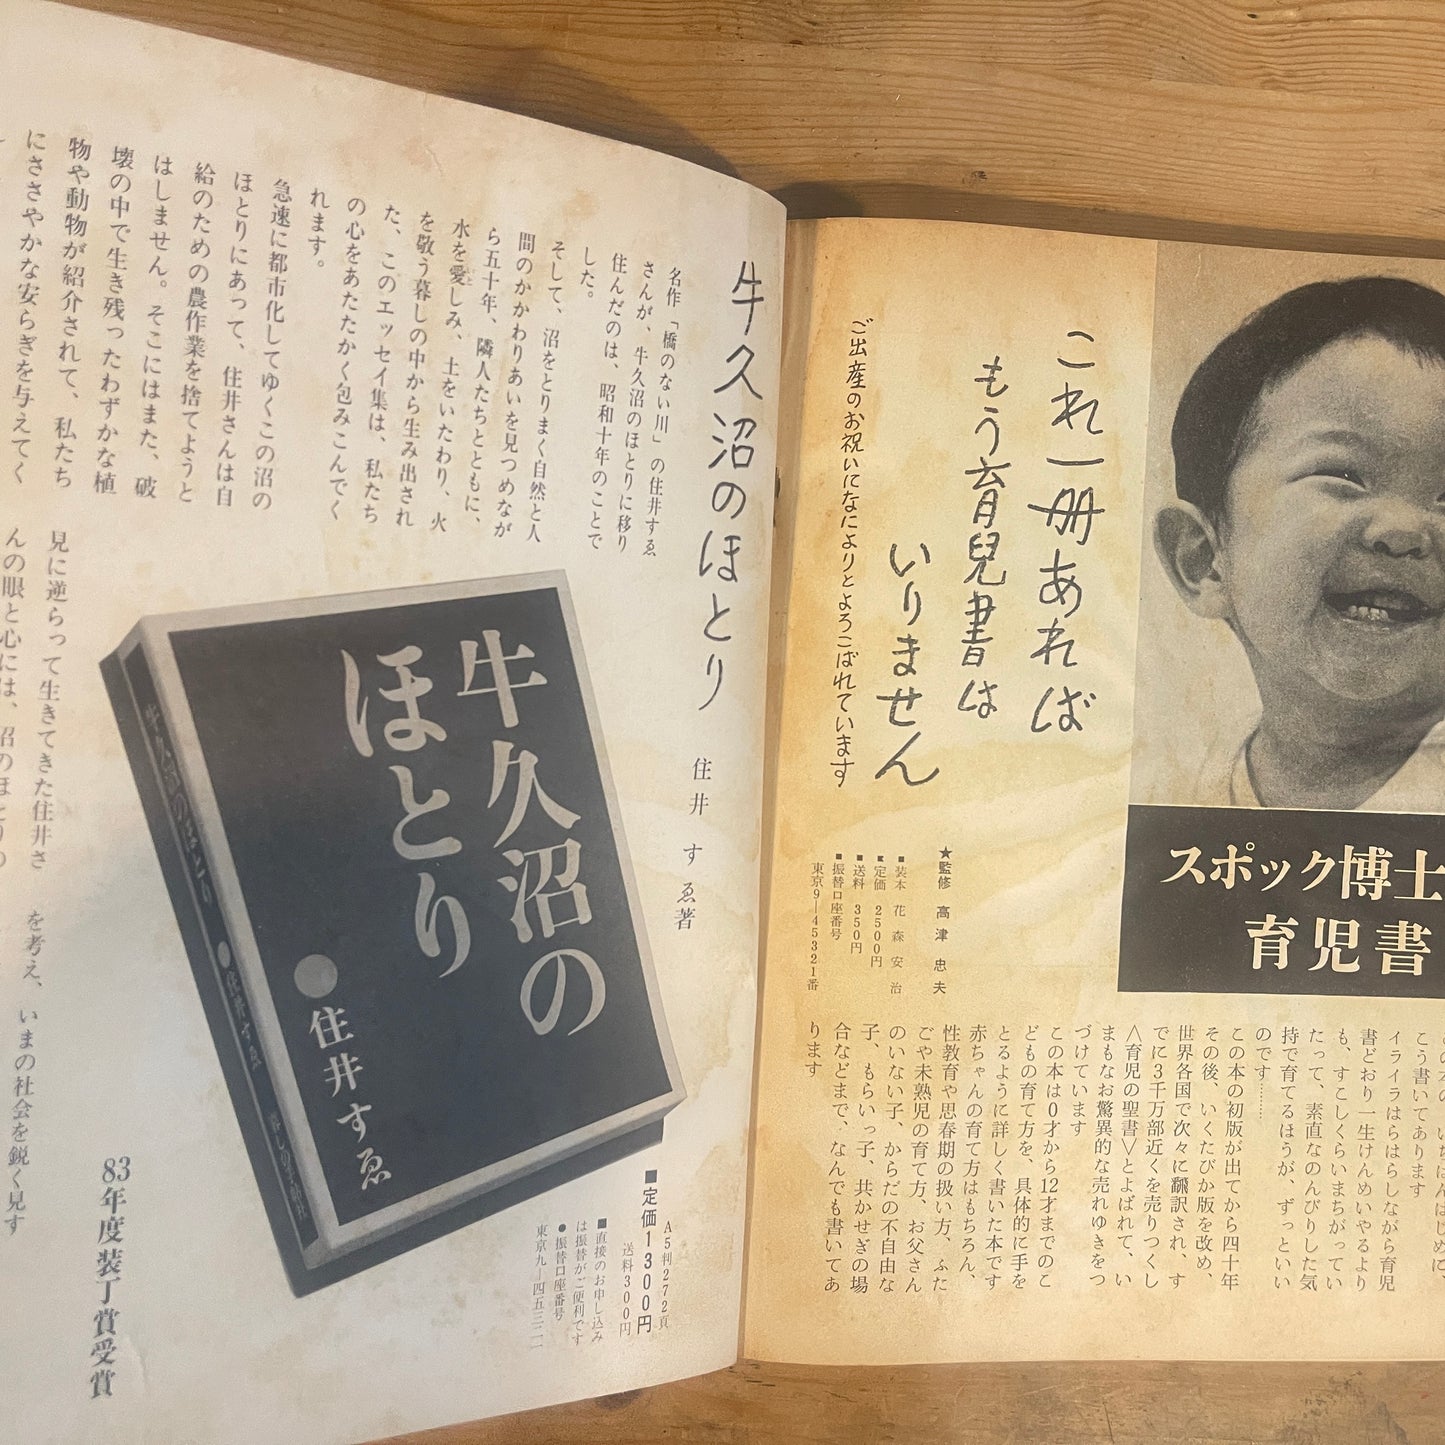 これ一册あれば
もう育兒書は
いりません
ご出産のお祝いになによりとよろこばれています
スポック博士
育児書
★監修 高津忠夫
■装本 花森安治
■定価 2500円
■送料 350円
■振替口座番号
東京9—45321番
いちばんはじめに、
こう書いてあります
イライラはらはらしながら育児
書どおり一生けんめいやるより
も、すこしくらいまちがってい
たって、素直なのんびりした気
持で育てるほうが、ずっといい
のです……
この本の初版が出てから四十年
その後、いくたびか版を改め、
世界各国で次々に翻訳され、す
でに3千万部近くを売りつくし
〈育児の聖書〉とよばれて、い
まもなお驚異的な売れゆきをつ
づけています
この本は0才から12才までのこ
どもの育て方を、具体的に手を
とるように詳しく書いた本です
赤ちゃんの育て方はもちろん、
性教育や思春期の扱い方、ふた
ごや未熟児の育て方、お父さん
のいない子、からだの不自由な
子、もらいっ子、共かせぎの場
合などまで、なんでも書いてあ
ります
牛久沼のほとり
住井すゑ著
名作「橋のない川」の住井すゑ
さんが、牛久沼のほとりに移り
住んだのは、昭和十年のことで
した。
そして、沼をとりまく自然と人
間のかかわりあいを見つめなが
ら五十年、隣人たちとともに、
水を愛しみ、土をいたわり、火
を敬う暮しの中から生み出され
た、このエッセイ集は、私たち
の心をあたたかく包みこんでく
れます。
急速に都市化してゆくこの沼の
ほとりにあって、住井さんは自
給のための農作業を捨てようと
はしません。そこにはまた、破
壊の中で生き残ったわずかな植
物や動物が紹介されて、私たち
にささやかな安らぎを与えてく
見に逆らって生きてきた住井さ
んの眼と心には、沼のほとりの
を考え、いまの社会を鋭く見す
牛久沼の
ほとり
●住井すゑ
牛久沼のほとり ●住井すゑ 暮しの手帖社
A5判272頁
■定価1300円
送料300円
■直接のお申し込み
は振替がご便利です
●振替口座番号
東京九—四五三二一
83年度装丁賞受賞